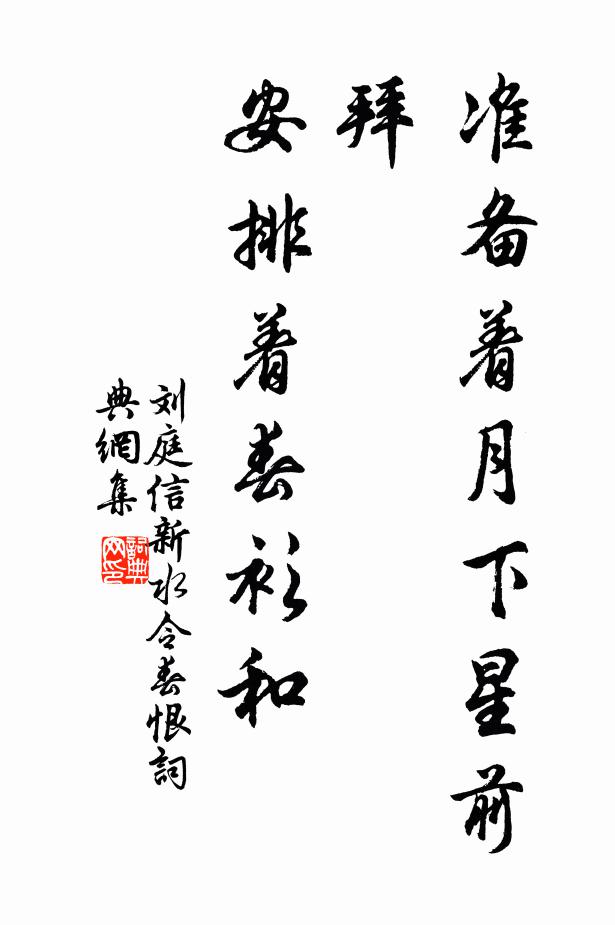 准备着月下星前
拜
安排着春衫和
刘庭信新水令春恨詞
典網集
詞典
网印